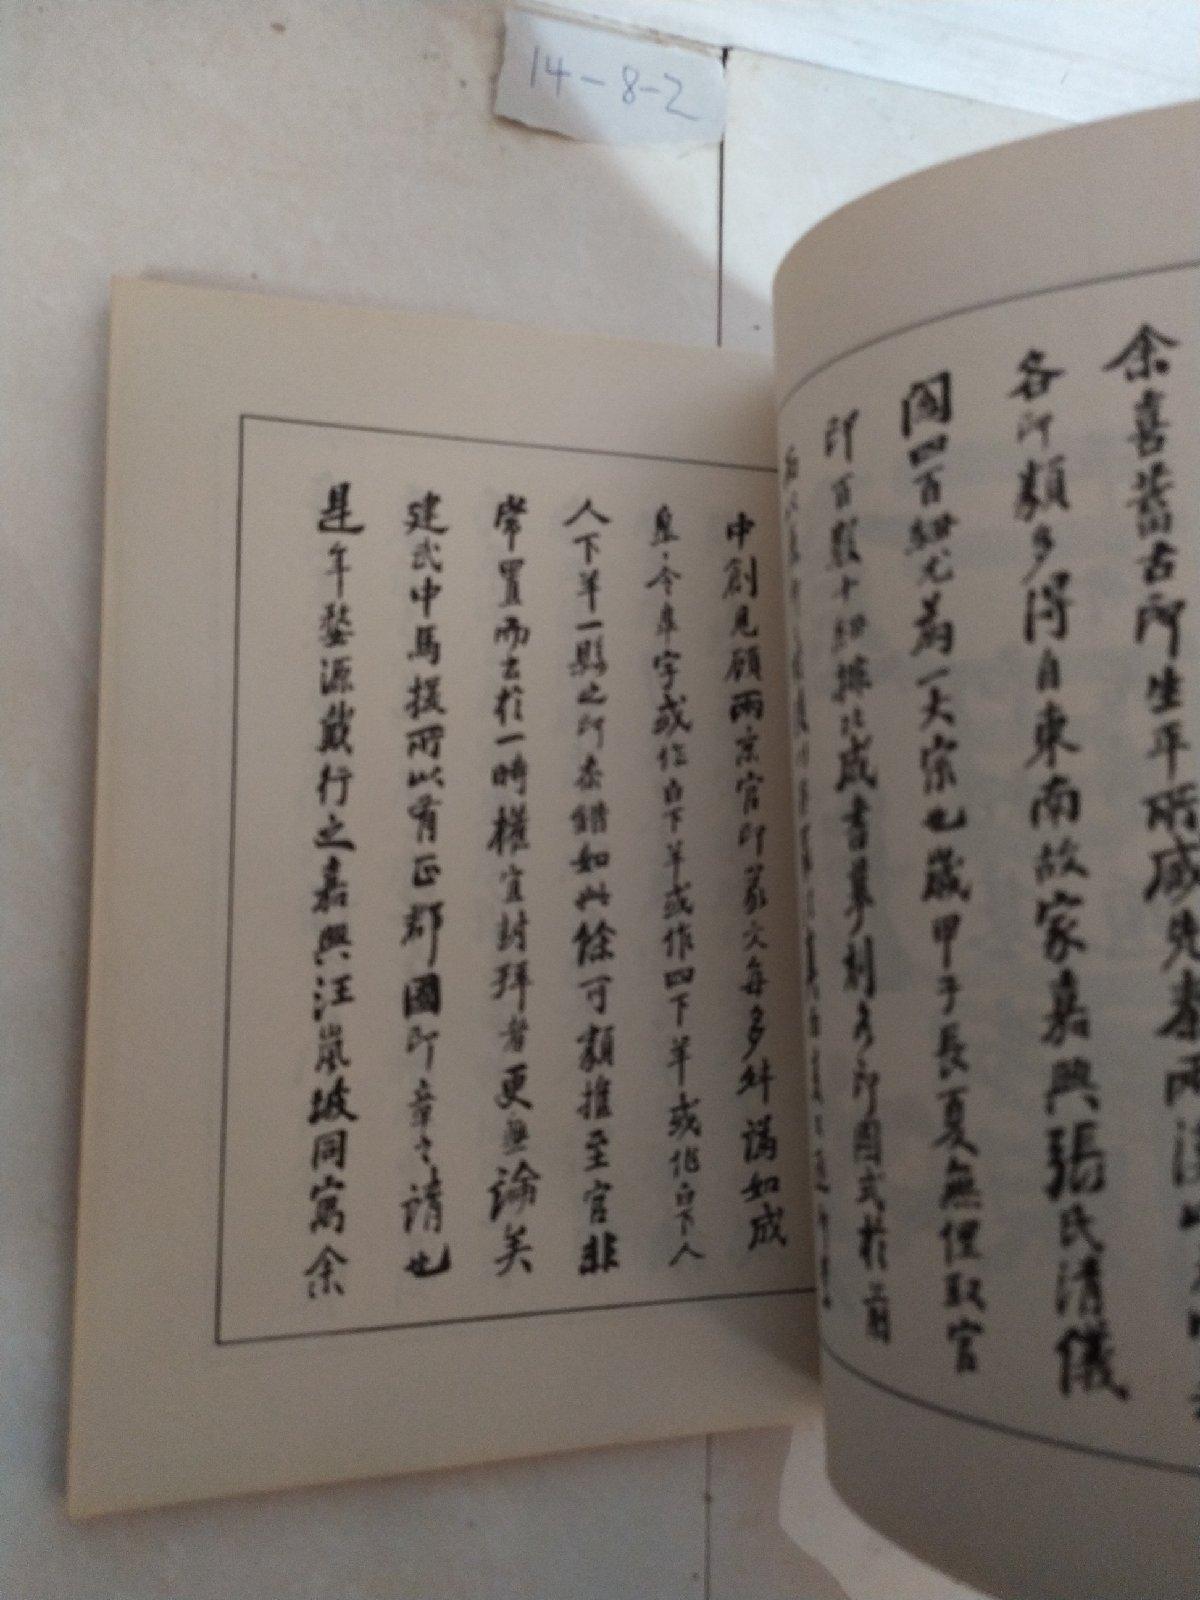 14-8-2
余喜蓄古印生平所藏先秦兩漢
各印類多得自東南故家嘉興張氏清儀
閣四百鈕尤為一大宗也歲甲子長夏無俚取官
印百數十鈕排比成書摹刻各印圖式於前
中創見顧兩京官印篆文每多舛譌如成
皋令皋字或作白下羊或作四下羊或作白下人
人下羊一縣之印參錯如此餘可類推至官非
常置而出於一時權宜封拜者更無論矣
建武中馬援所以有正郡國印章之請也
是年婺源戴行之嘉興汪嵐坡同寓余